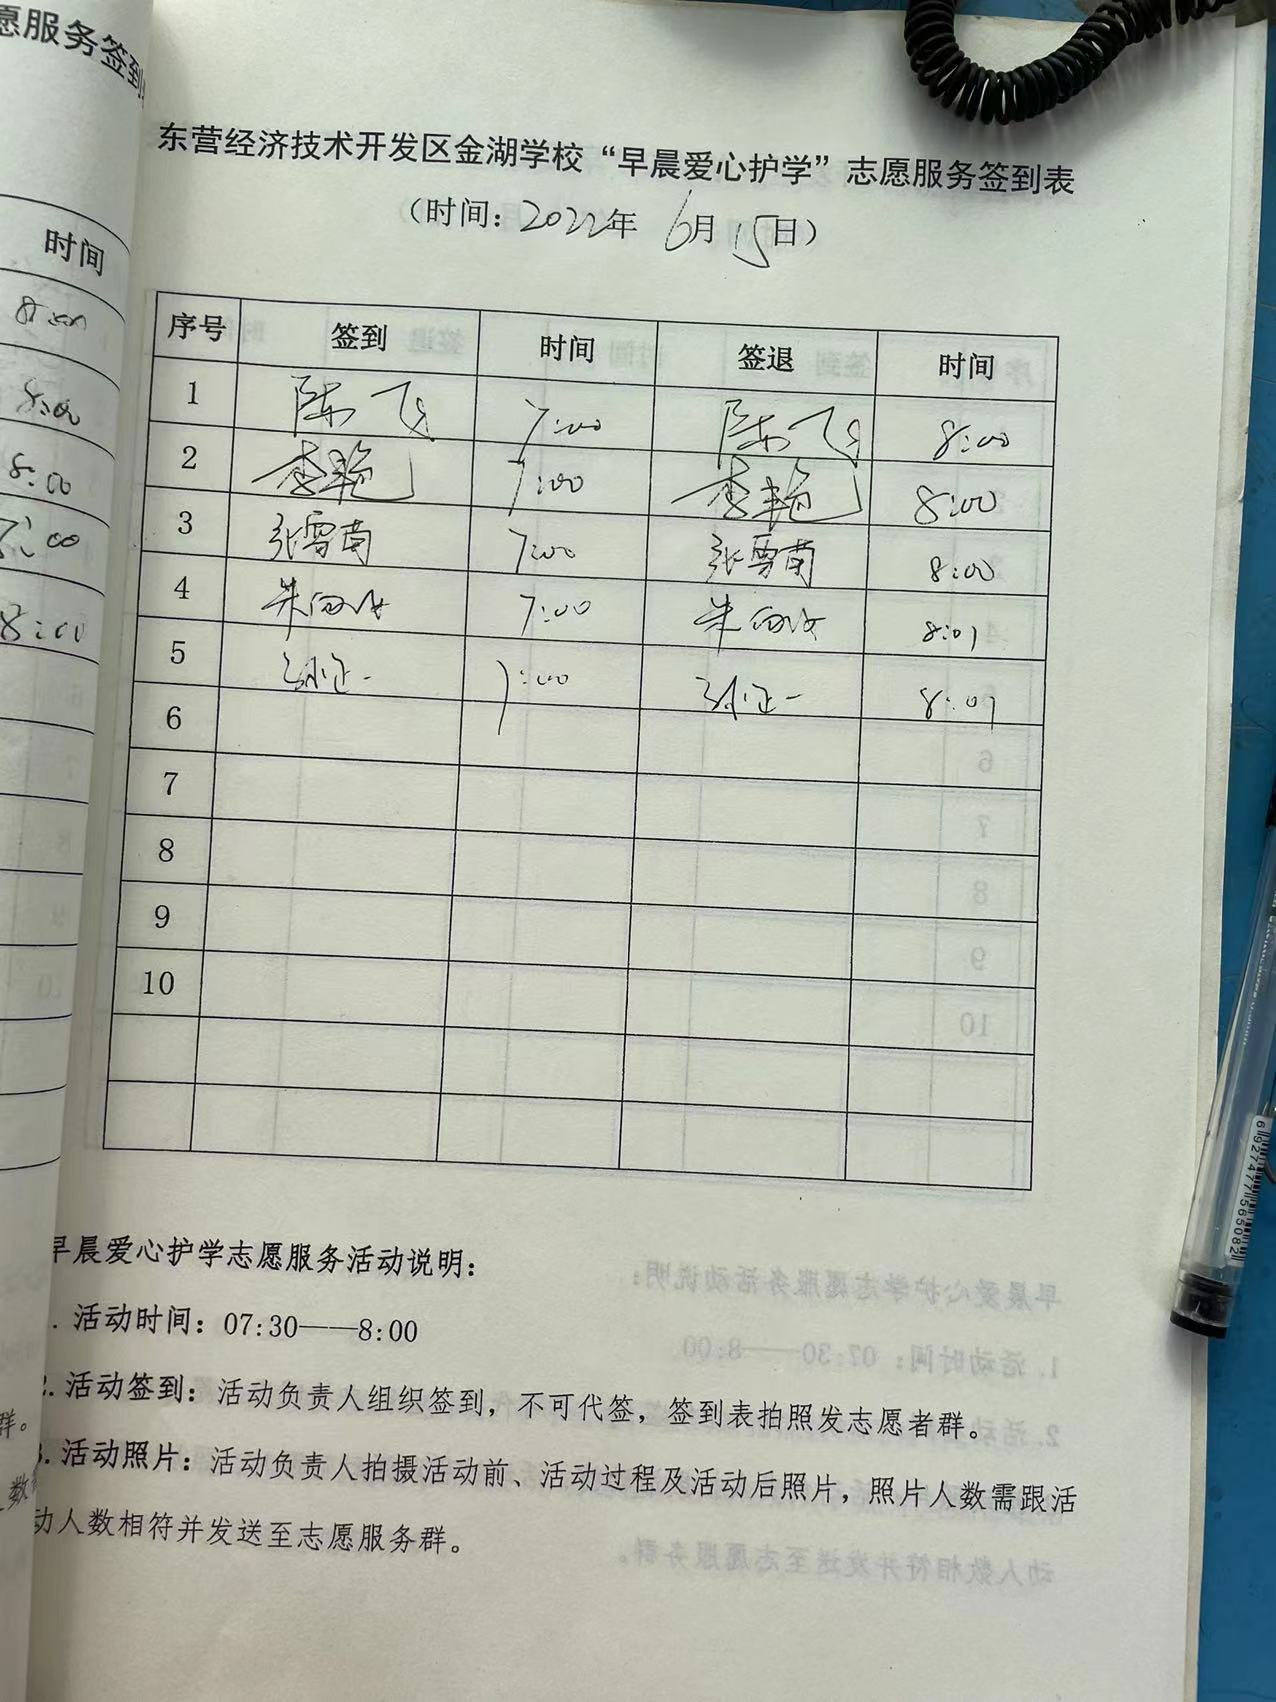 愿服务签到
时间
8:00
8:00
8:00
7:00
8:00
群。
数
东营经济技术开发区金湖学校“早晨爱心护学”志愿服务签到表
(时间:2022年 6月15日)
序号 签到 时间 签退 时间
1 陈飞 7:00 陈飞 8:00
2 李艳 7:00 李艳 8:00
3 张雪菊 7:00 张雪菊 8:00
4 朱 7:00 朱 8:01
5 7:00 8:01
6
7
8
9
10
早晨爱心护学志愿服务活动说明:
. 活动时间:07:30——8:00
2. 活动签到:活动负责人组织签到,不可代签,签到表拍照发志愿者群。
3. 活动照片:活动负责人拍摄活动前、活动过程及活动后照片,照片人数需跟活
动人数相符并发送至志愿服务群。
6 927477 565082